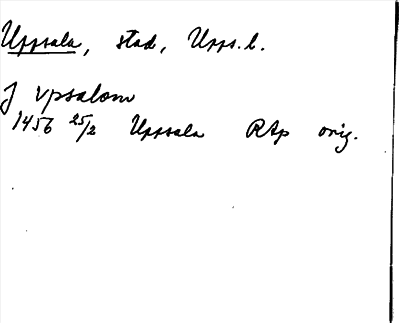 Uppsala, stad, Upps.l.
J vpsalom
1456 25/2 Uppsala RAp orig.